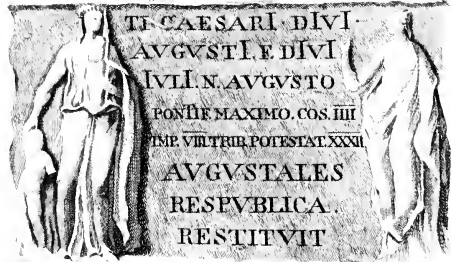 TI. CAESARI · DIVI ·
AVGVSTI. F. DIVI
IVLI. N. AVGVSTO
PONTIF. MAXIMO. COS. IIII
IMP. VIII. TRIB. POTESTAT. XXXII
AVGVSTALES
RESPVBLICA.
RESTITVIT